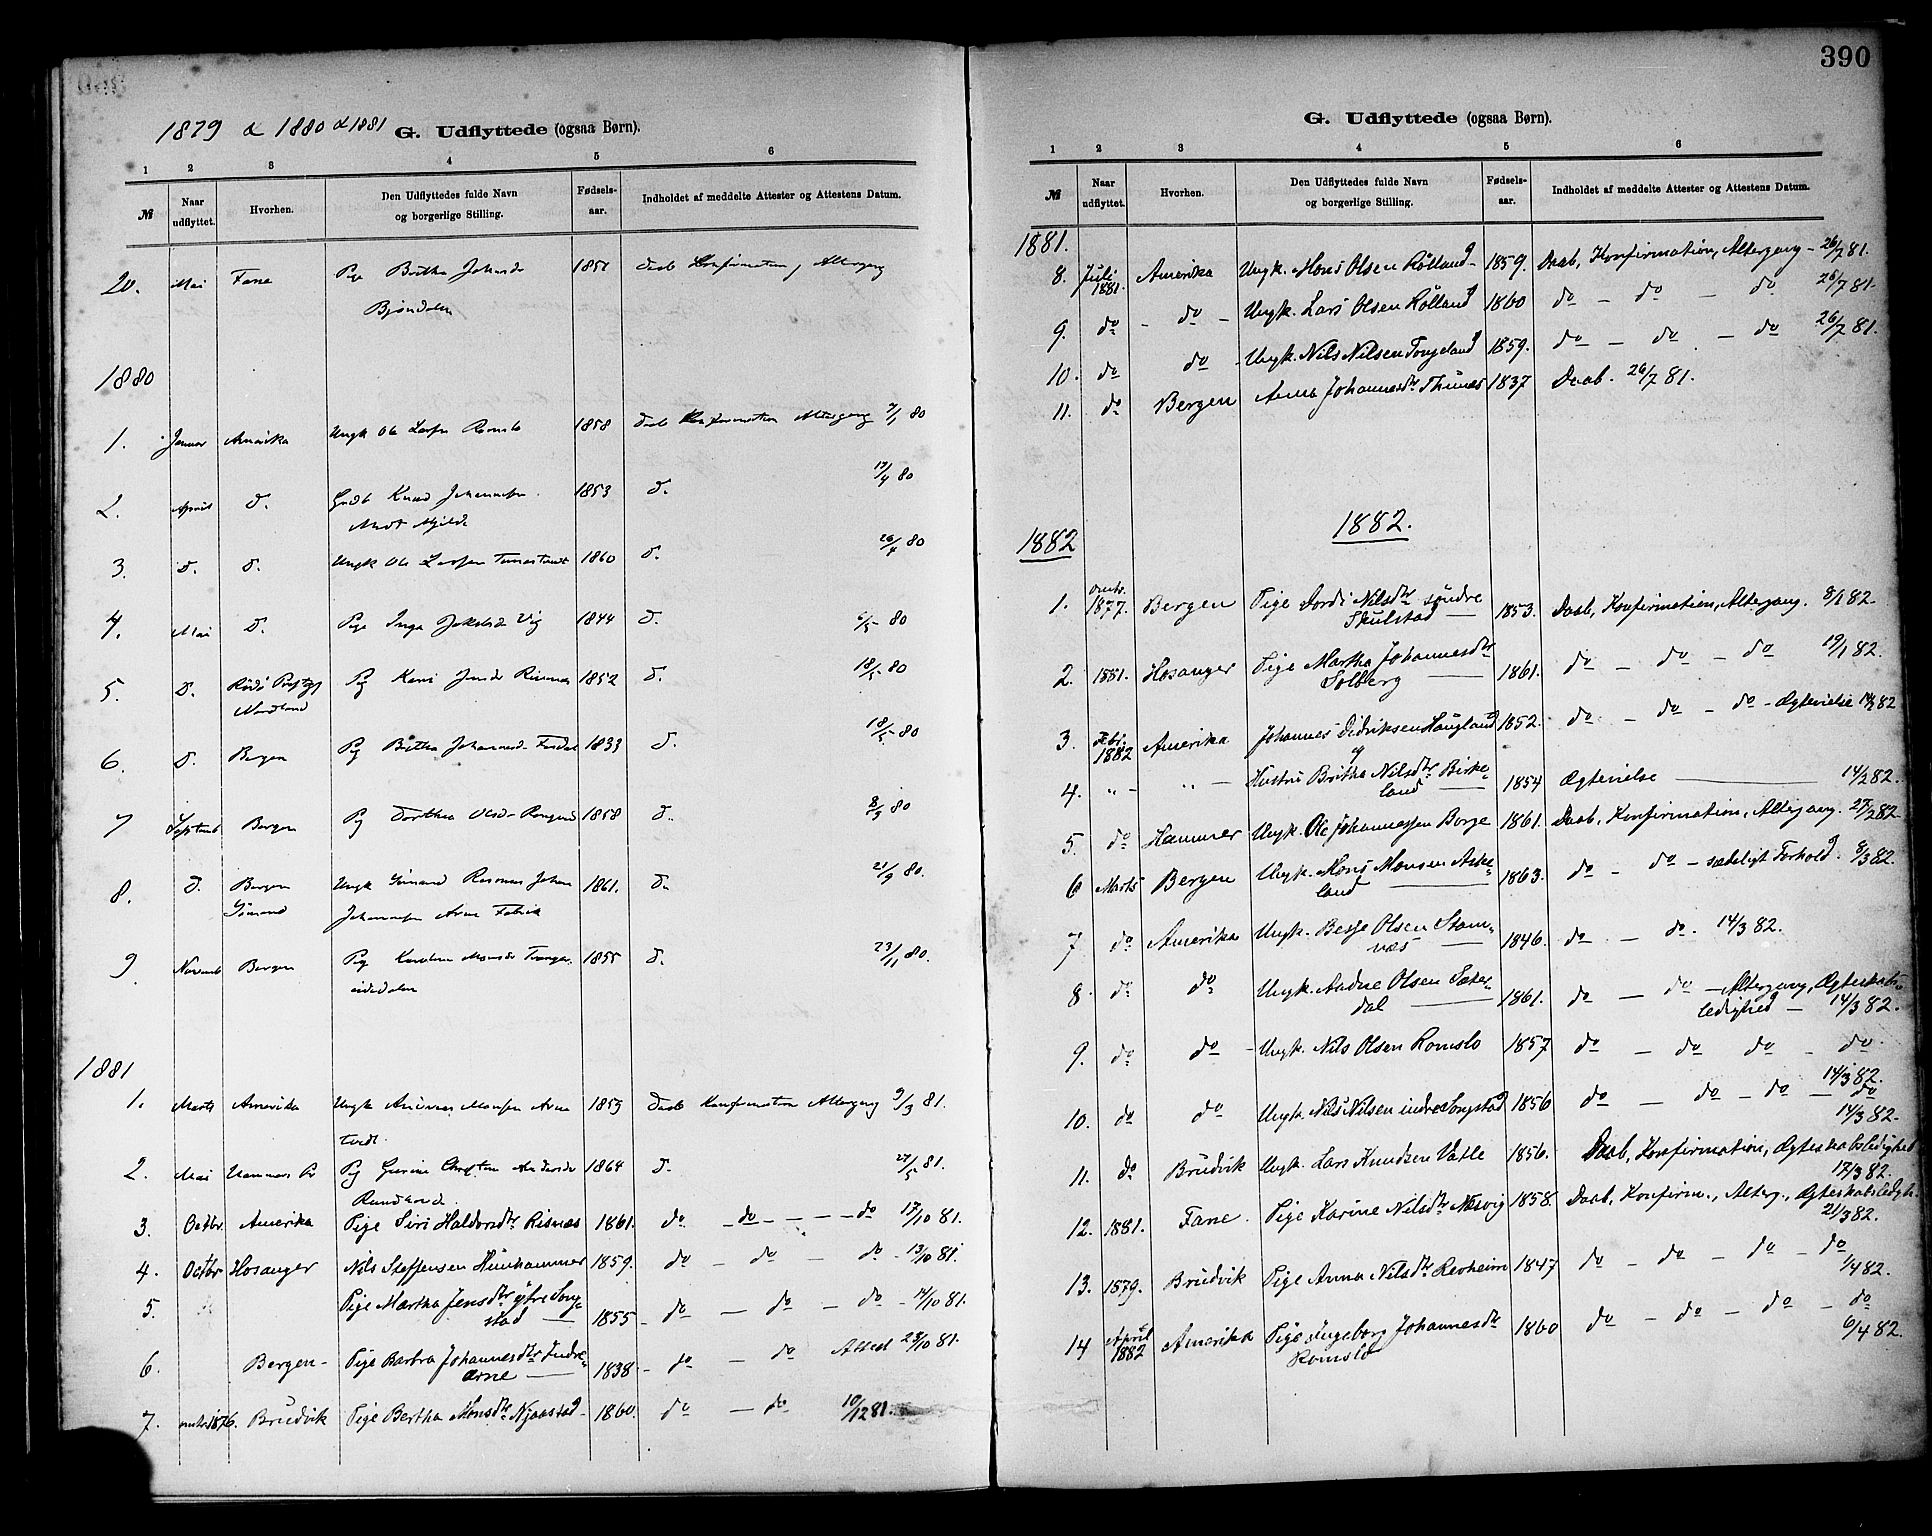 390
1879 & 1880 & 1881
G. Udflyttede (ogsaa Børn).
1 2 3 4 5 6
№ Naar udflyttet. Hvorhen. Den Udflyttedes fulde Navn og borgerlige Stilling. Fødselsaar. Indholdet af meddelte Attester og Attestens Datum.
20. Mai Fane Pige Britha Johnsdr 1851 Daab Konfirmation, Altergang
Bjøndalen
1880
1. Januar Amerika Ungk Ole Larsen Romslo 1858 Daab Konfirmation Altergang /1 80
2. April d. Knud Johannesen 1853 d. 17/4 80
Mjelde
3. d. d. Ungk Ole Larsen Tunestvedt 1860 d. 26/4 80
4. Mai d. Pige Inga Jakobsdr Vig 1844 d. 6/5 80
5. d. Rödö Prstgj Pig Kari Jensdr Risnes 1852 d. 18/5 80
Nordland
6. d. Bergen Pig Britha Johannesdr 1833 d. 18/5 80
7 Septemb Bergen Pig Dorthea Olsdr 1858 d. 8/9 80
8. d. Bergen Ungk Sömand Rasmus Johan 1861. d. 21/9 80.
Sömand Johannesen Arne Fabrik
9 Novemb Bergen Pig Karoline Monsdr Trenger- 1855 d. 23/11 80.
eidsdalen
1881
1. Marts Amerika Ungk Monsen Arne 1853 Daab Konfirmation Altergang 9/3 81.
tvedt.
2. Mai Hammer Pr Pig Gurine Andersdr 1864 d. 27/5 81.
Rundhovde
3. Octbr. Amerika Pige Siri Haldorsdtr Risnes 1861. do - do - - - do 17/10 81.
4. Octbr Hosanger Nils Steffensen Himhammer 1859. do - do - do - 13/10 81.
5. Pige Martha Jensdtr ytre Song- 1855 - do - do - do - 14/10 81.
stad
6. Bergen - Pige Barbra Johannesdtr Indre- 1838 - do - do Attest 28/10 81.
Arne
7. 1876. Brudvik Pige Bertha Monsdtr Njaastad - 1860. do - do 10/12 81.
G. Udflyttede (ogsaa Børn).
1 2 3 4 5 6
№ Naar udflyttet. Hvorhen. Den Udflyttedes fulde Navn og borgerlige Stilling. Fødselsaar. Indholdet af meddelte Attester og Attestens Datum.
1881.
8. Juli 1881. Amerika Ungk. Mons Olsen Rølland - 1859. Daab, Konfirmation, Altergang - 26/7 81.
9. do - do - Ungk. Lars Olsen Rølland 1860 do - do - do 26/7 81.
10. do do Ungk. Nils Nilsen Tongeland 1859. do - do - do 26/7 81.
11. do Bergen Anna Johannesdtr Thunes 1837 Daab. 26/7 81.
1882.
1882
1. omtr. 1877. Bergen Pige Dordi Nilsdtr söndre 1853. Daab, Konfirmation, Altergang. 8/1 82.
Skulstad
2. 1881. Hosanger Pige Martha Johannesdtr 1861. do - do - do 19/1 82.
Solberg
3. Febr. 1882 Amerika Johannes Didriksen Haugland 1852. do - do - do - Ægtevielse 14/2 82
og
4. " - " - Hustru Britha Nilsdtr Birke- 1854 Ægtevielse 14/2 82.
land
5. do Hammer Ungk. Ole Johannessen Borge 1861. Daab, Konfirmation, Altergang. 27/2 82.
6 Marts Bergen Ungk. Mons Monsen Aske- 1863. do - do - sædeligt Forhold. 8/3 82.
land
7 do Amerika Ungk. Besse Olsen Stam- 1846. do - do. 14/3 82.
næs
8. do do Ungk. Andne Olsen Sæte- 1861. do - do - Altergang, Ægteskabs-
dal ledighed - 14/3 82.
9. do do - Ungk. Nils Olsen Romslo 1857 do - do do - do.
14/3 82.
10. do do Ungk. Nils Nilsen indre Songstad 1856 do - do - do - do
14/3 82.
11. do Brudvik Ungk. Lars Knudsen Vatle 1856. Daab, Konfirmation, Ægteskabsledighed
17/3 82.
12. 1881. Fane. Pige Karine Nilsdtr Næsvig 1858. Daab, Konfirm., Alterg., Ægteskabsledigh.
21/3 82.
13. 1879. Brudvik Pige Anna Nilsdtr Revheim 1847 do - do - do - do
1/4 82.
14 April 1882 Amerika Pige Ingeborg Johannesdtr 1860 do - do - do - do
Romslo 6/4 82.